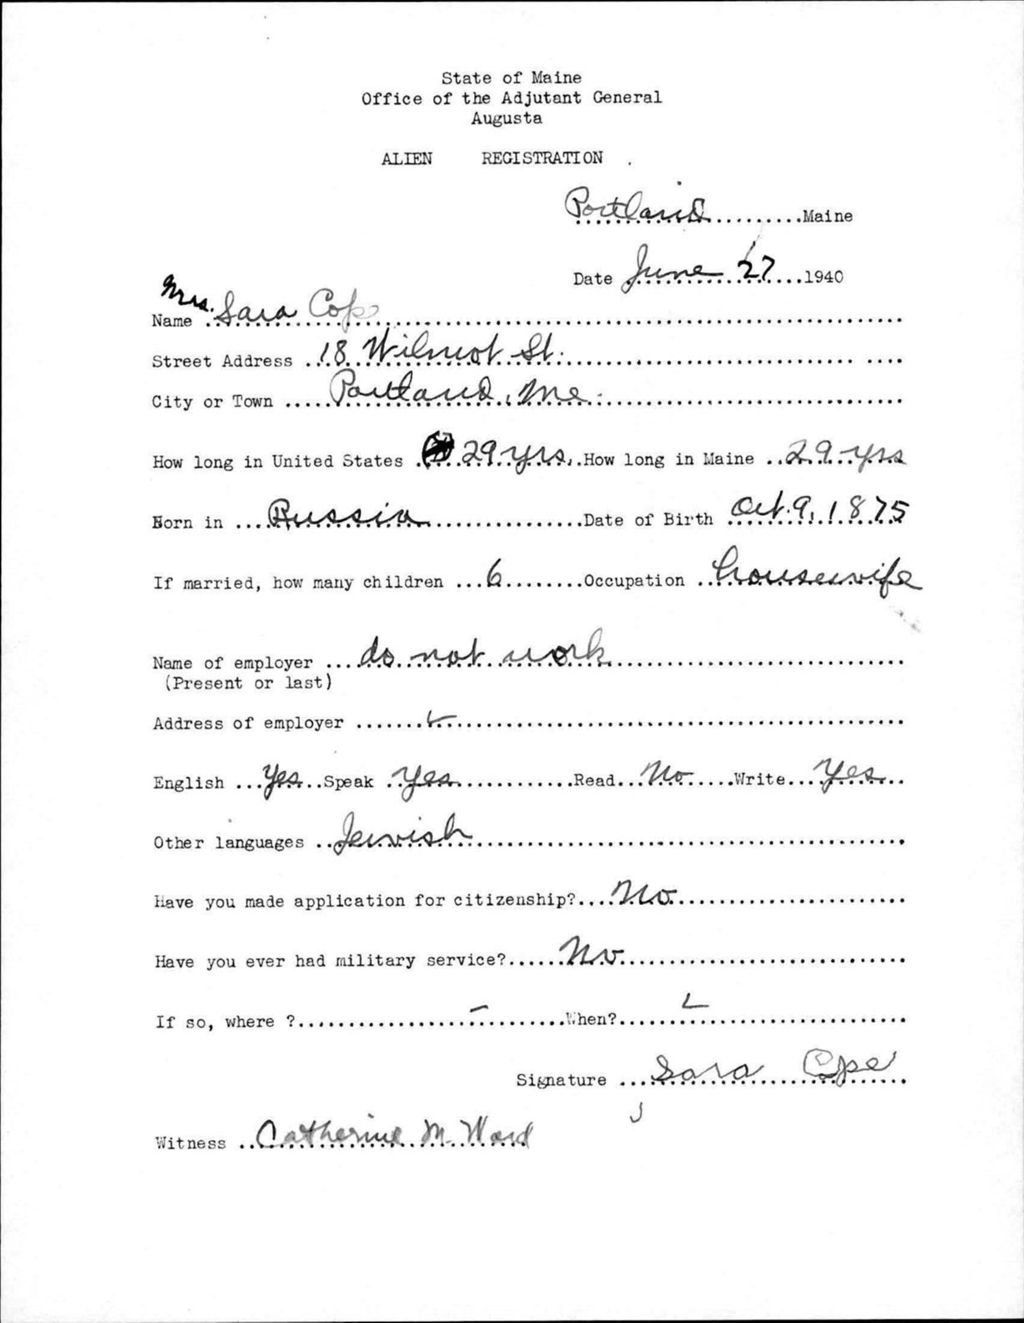 State of Maine
Office of the Adjutant General
Augusta
ALIEN REGISTRATION
Portland..........Maine
Date June 27...1940
Mrs.
Name ..Sara Cope
Street Address ..18 Wilmot St.
City or Town .....Portland, Me.
How long in United States ..29 yrs...How long in Maine ..29 yrs
Born in ...Russia................Date of Birth Oct. 9, 1875
If married, how many children ...6........Occupation ..housewife
Name of employer ...do not work
(Present or last)
Address of employer
English ...Yes..Speak ..Yes............Read...No.....Write...Yes...
Other languages ..Jewish
Have you made application for citizenship?....No.
Have you ever had military service?......No.
If so, where ?.................-..........When?
Signature ...Sara Cope
Witness ..Catherine M. Ward